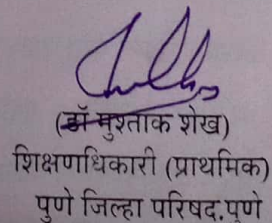 (डॉ मुश्ताक शेख)
शिक्षणधिकारी (प्राथमिक)
पुणे जिल्हा परिषद.पुणे